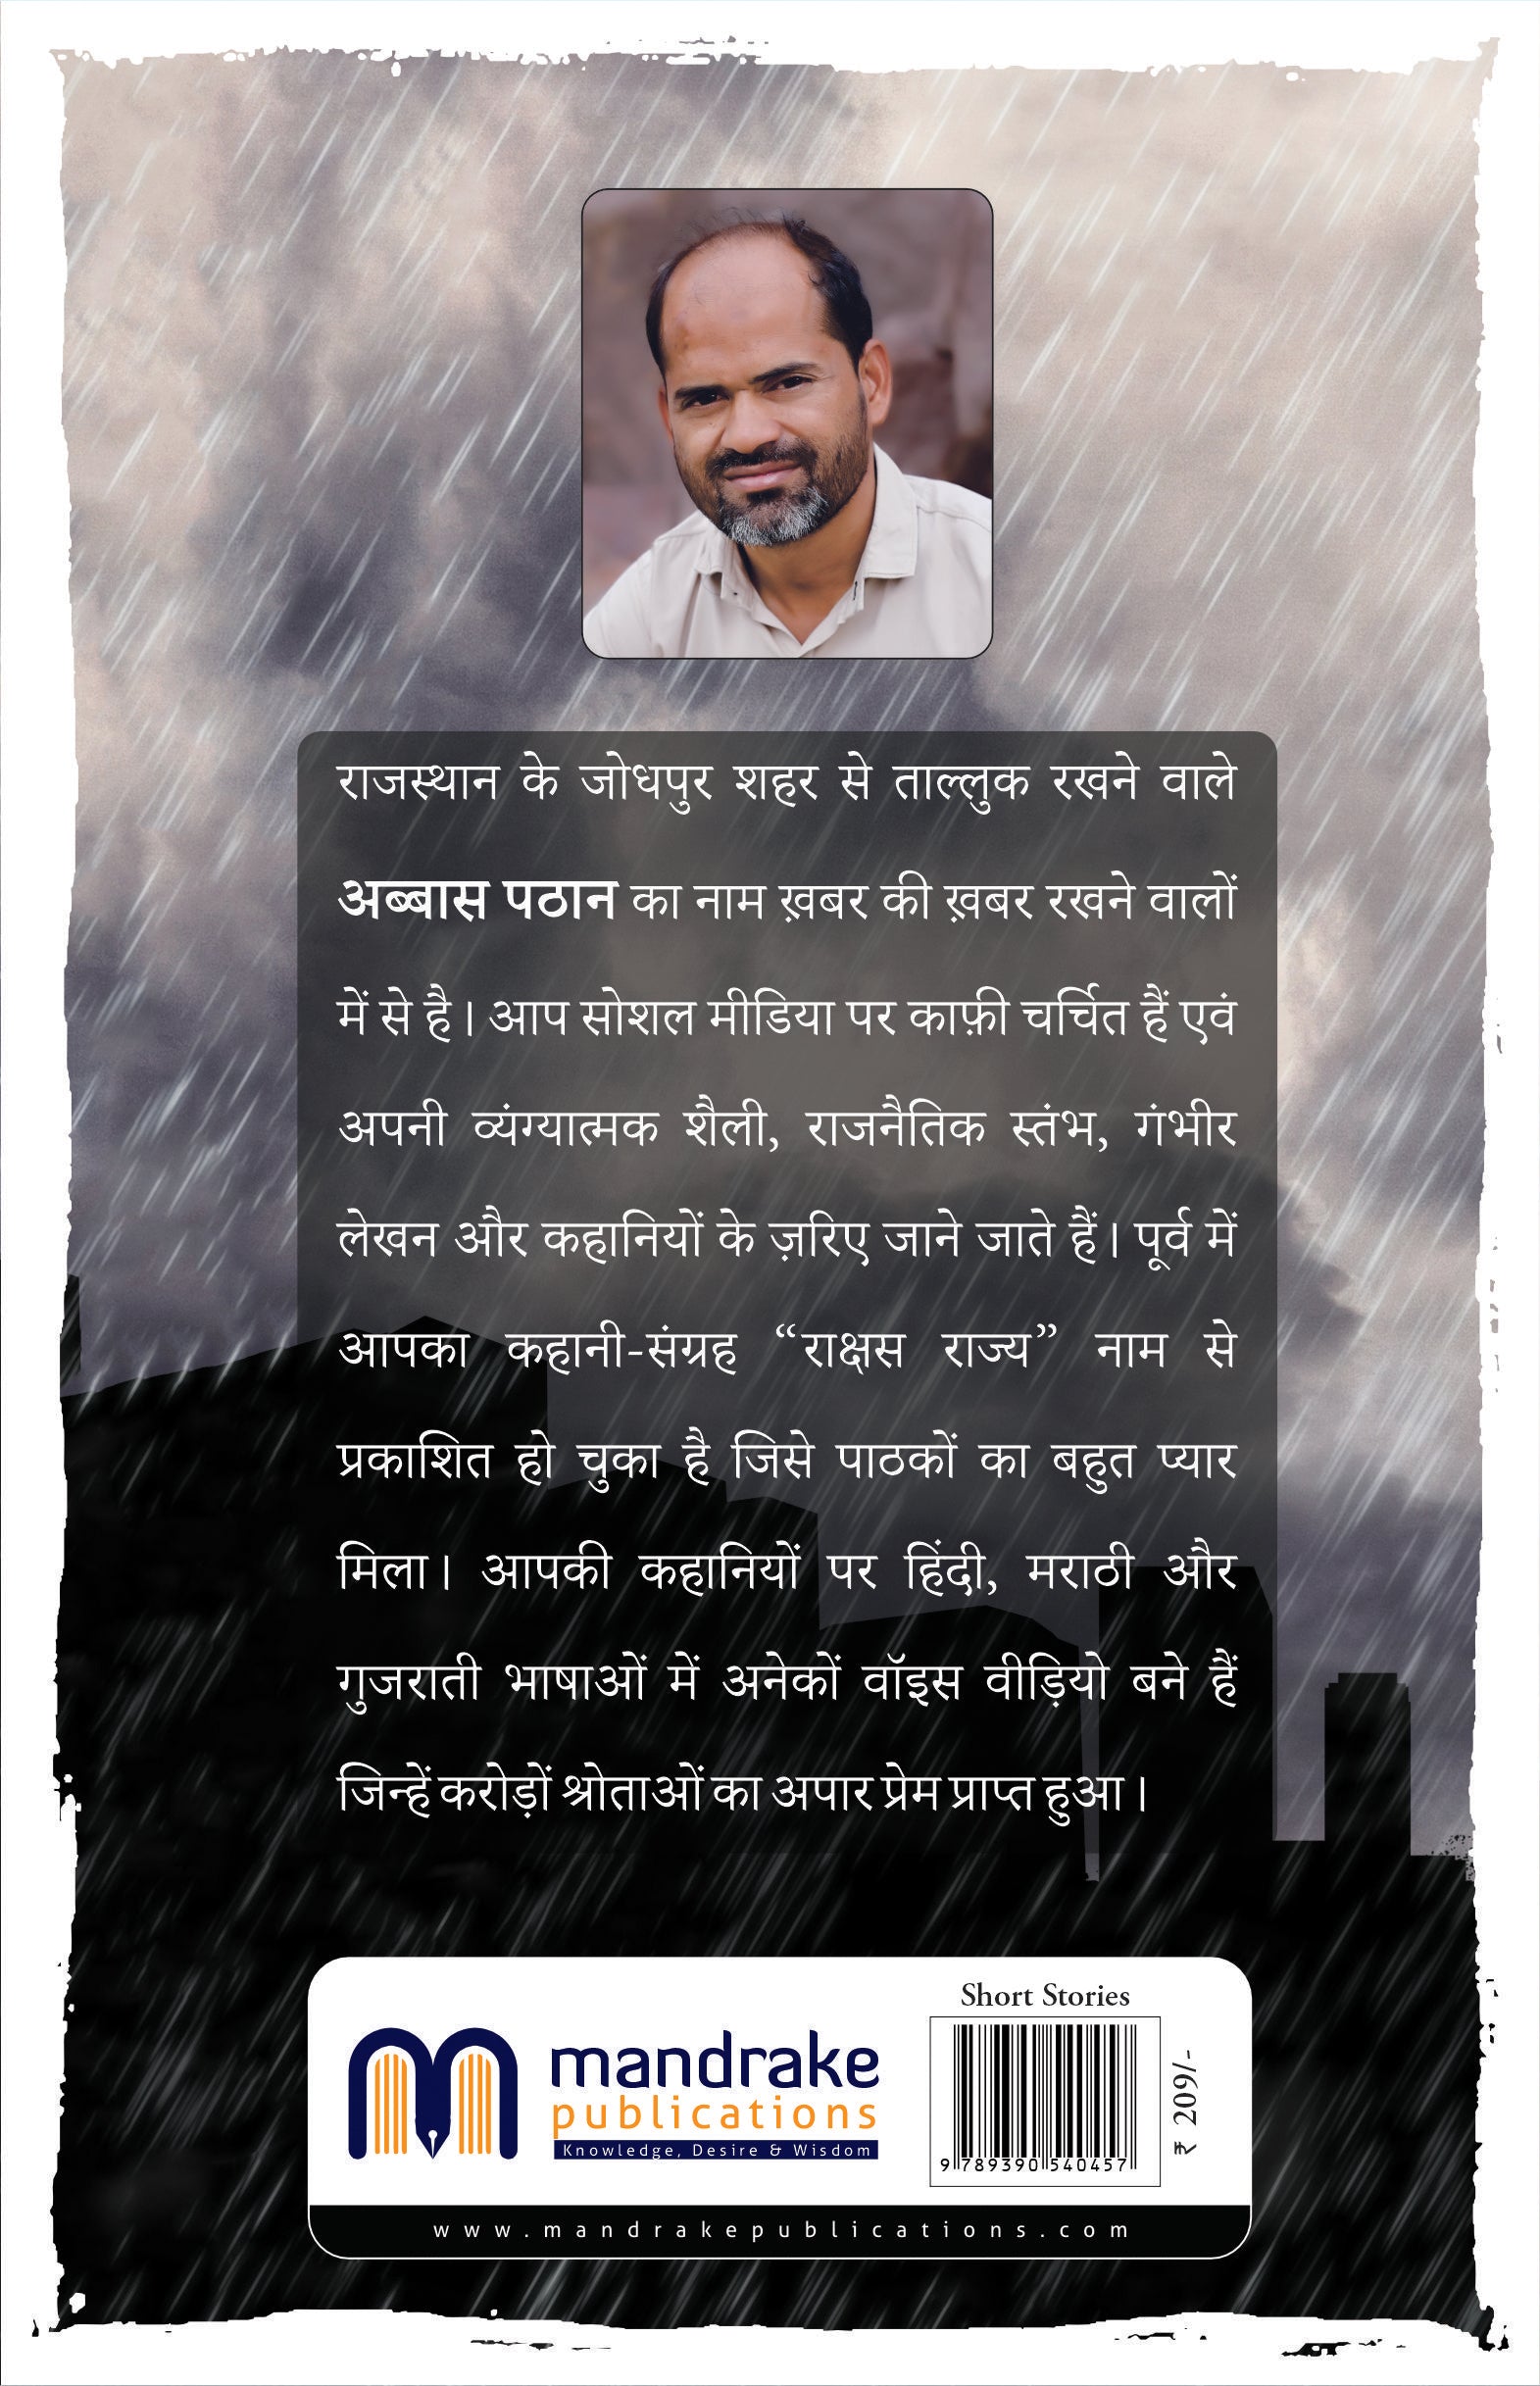 राजस्थान के जोधपुर शहर से ताल्लुक रखने वाले
अब्बास पठान का नाम ख़बर की ख़बर रखने वालों
में से है। आप सोशल मीडिया पर काफ़ी चर्चित हैं एवं
अपनी व्यंग्यात्मक शैली, राजनैतिक स्तंभ, गंभीर
लेखन और कहानियों के ज़रिए जाने जाते हैं। पूर्व में
आपका कहानी-संग्रह “राक्षस राज्य” नाम से
प्रकाशित हो चुका है जिसे पाठकों का बहुत प्यार
मिला। आपकी कहानियों पर हिंदी, मराठी और
गुजराती भाषाओं में अनेकों वॉइस वीड़ियो बने हैं
जिन्हें करोड़ों श्रोताओं का अपार प्रेम प्राप्त हुआ।
mandrake
publications
Knowledge, Desire & Wisdom
Short Stories
9 789390 540457
₹ 209/-
www.mandrakepublications.com